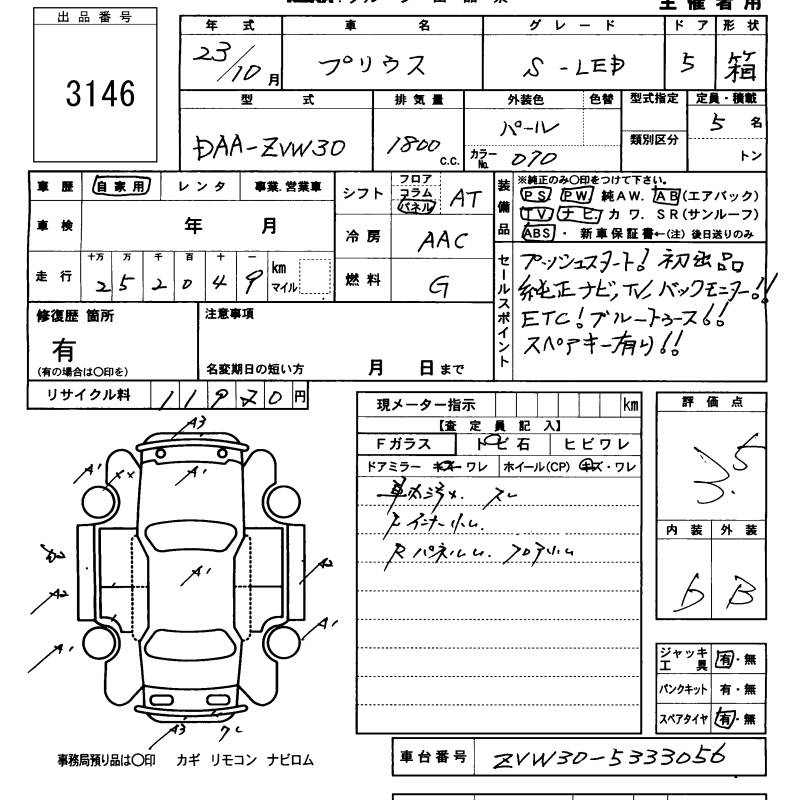 主催者用
出品番号
3146
年式 車名 グレード ドア 形状
23/10月 プリウス S-LED 5 箱
型式 排気量 外装色 色替 型式指定 定員・積載
DAA-ZVW30 1800 c.c. パール 5 名
カラーNo. 070 類別区分 トン
車歴 自家用 レンタ 事業.営業車
車検 年 月
走行 十万 万 千 百 十 一
2 5 2 0 4 9 km マイル
シフト フロア コラム パネル AT
冷房 AAC
燃料 G
装備品 ※純正のみ○印をつけて下さい。
PS PW 純AW. AB(エアバック)
TV ナビ. カワ. SR(サンルーフ)
ABS ・ 新車保証書←(注) 後日送りのみ
セールスポイント
プッシュスタート! 初出品
純正ナビ,TV,バックモニター!!
ETC! ブルートゥース!!
スペアキー有り!!
修復歴 箇所 注意事項
有
(有の場合は○印を) 名変期日の短い方 月 日まで
リサイクル料 11970円
現メーター指示 km
【査定員記入】
Fガラス トビ石 ヒビワレ
ドアミラー キズ・ワレ ホイール(CP) キズ・ワレ
車内汚れ. スレ
評価点
3.5
内装 外装
D B
A3
A1
××
A1
A2
A1
A2
A1
A1
A3
ジャッキ工具 有・無
パンクキット 有・無
スペアタイヤ 有・無
事務局預り品は○印 カギ リモコン ナビロム
車台番号 ZVW30-5333056